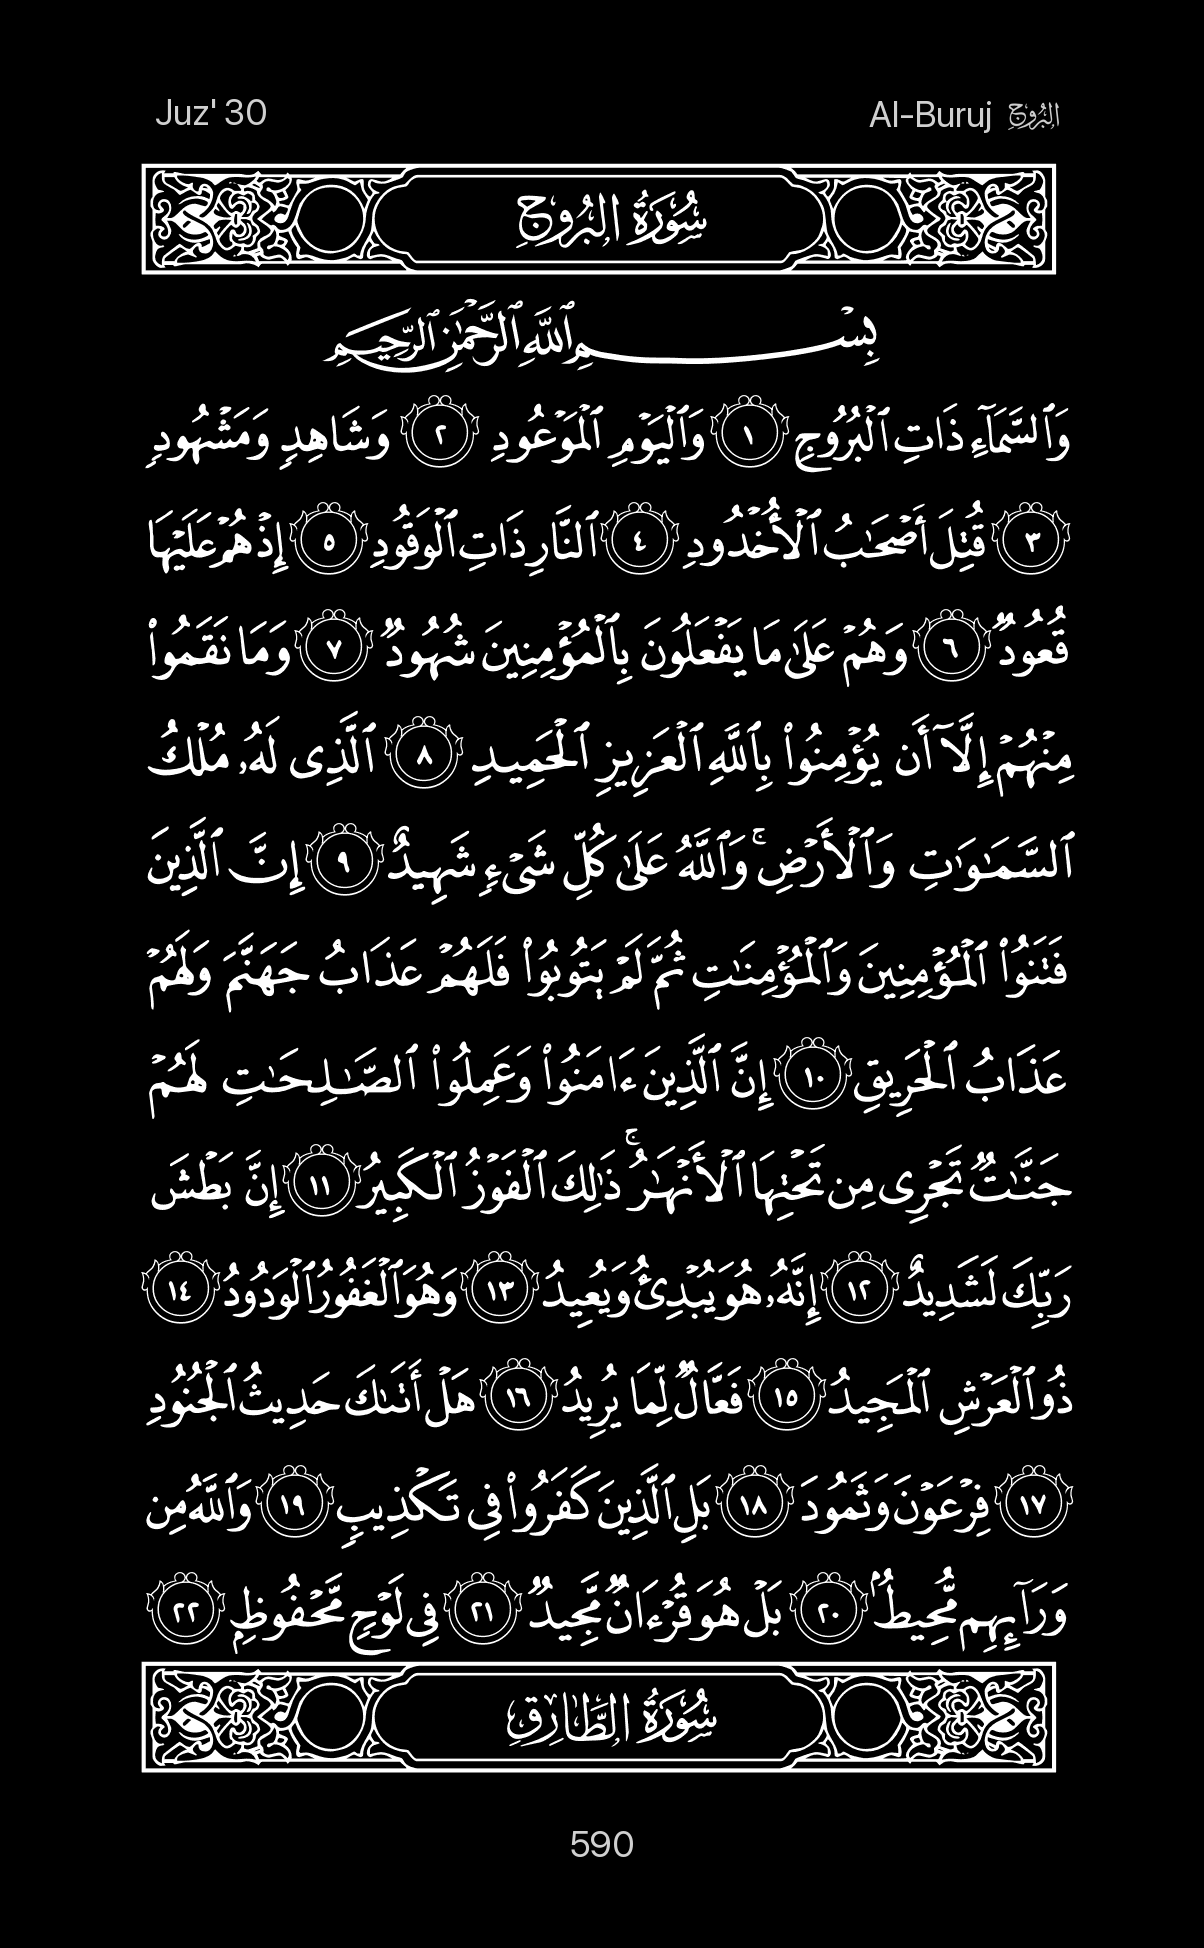 Juz' 30 Al-Buruj البروج
سُورَةُ البُرُوجِ
بِسۡمِ ٱللَّهِ ٱلرَّحۡمَٰنِ ٱلرَّحِيمِ
وَٱلسَّمَآءِ ذَاتِ ٱلۡبُرُوجِ ١ وَٱلۡيَوۡمِ ٱلۡمَوۡعُودِ ٢ وَشَاهِدٖ وَمَشۡهُودٖ
٣ قُتِلَ أَصۡحَٰبُ ٱلۡأُخۡدُودِ ٤ ٱلنَّارِ ذَاتِ ٱلۡوَقُودِ ٥ إِذۡ هُمۡ عَلَيۡهَا
قُعُودٞ ٦ وَهُمۡ عَلَىٰ مَا يَفۡعَلُونَ بِٱلۡمُؤۡمِنِينَ شُهُودٞ ٧ وَمَا نَقَمُواْ
مِنۡهُمۡ إِلَّآ أَن يُؤۡمِنُواْ بِٱللَّهِ ٱلۡعَزِيزِ ٱلۡحَمِيدِ ٨ ٱلَّذِي لَهُۥ مُلۡكُ
ٱلسَّمَٰوَٰتِ وَٱلۡأَرۡضِۚ وَٱللَّهُ عَلَىٰ كُلِّ شَيۡءٖ شَهِيدٌ ٩ إِنَّ ٱلَّذِينَ
فَتَنُواْ ٱلۡمُؤۡمِنِينَ وَٱلۡمُؤۡمِنَٰتِ ثُمَّ لَمۡ يَتُوبُواْ فَلَهُمۡ عَذَابُ جَهَنَّمَ وَلَهُمۡ
عَذَابُ ٱلۡحَرِيقِ ١٠ إِنَّ ٱلَّذِينَ ءَامَنُواْ وَعَمِلُواْ ٱلصَّٰلِحَٰتِ لَهُمۡ
جَنَّٰتٞ تَجۡرِي مِن تَحۡتِهَا ٱلۡأَنۡهَٰرُۚ ذَٰلِكَ ٱلۡفَوۡزُ ٱلۡكَبِيرُ ١١ إِنَّ بَطۡشَ
رَبِّكَ لَشَدِيدٌ ١٢ إِنَّهُۥ هُوَ يُبۡدِئُ وَيُعِيدُ ١٣ وَهُوَ ٱلۡغَفُورُ ٱلۡوَدُودُ ١٤
ذُو ٱلۡعَرۡشِ ٱلۡمَجِيدُ ١٥ فَعَّالٞ لِّمَا يُرِيدُ ١٦ هَلۡ أَتَىٰكَ حَدِيثُ ٱلۡجُنُودِ
١٧ فِرۡعَوۡنَ وَثَمُودَ ١٨ بَلِ ٱلَّذِينَ كَفَرُواْ فِي تَكۡذِيبٖ ١٩ وَٱللَّهُ مِن
وَرَآئِهِم مُّحِيطُۢ ٢٠ بَلۡ هُوَ قُرۡءَانٞ مَّجِيدٞ ٢١ فِي لَوۡحٖ مَّحۡفُوظِۭ ٢٢
سُورَةُ الطَّارِقِ
590